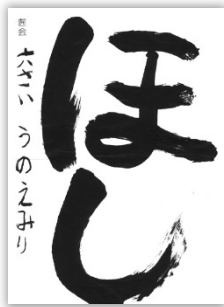 ほし
六さい うのえみり